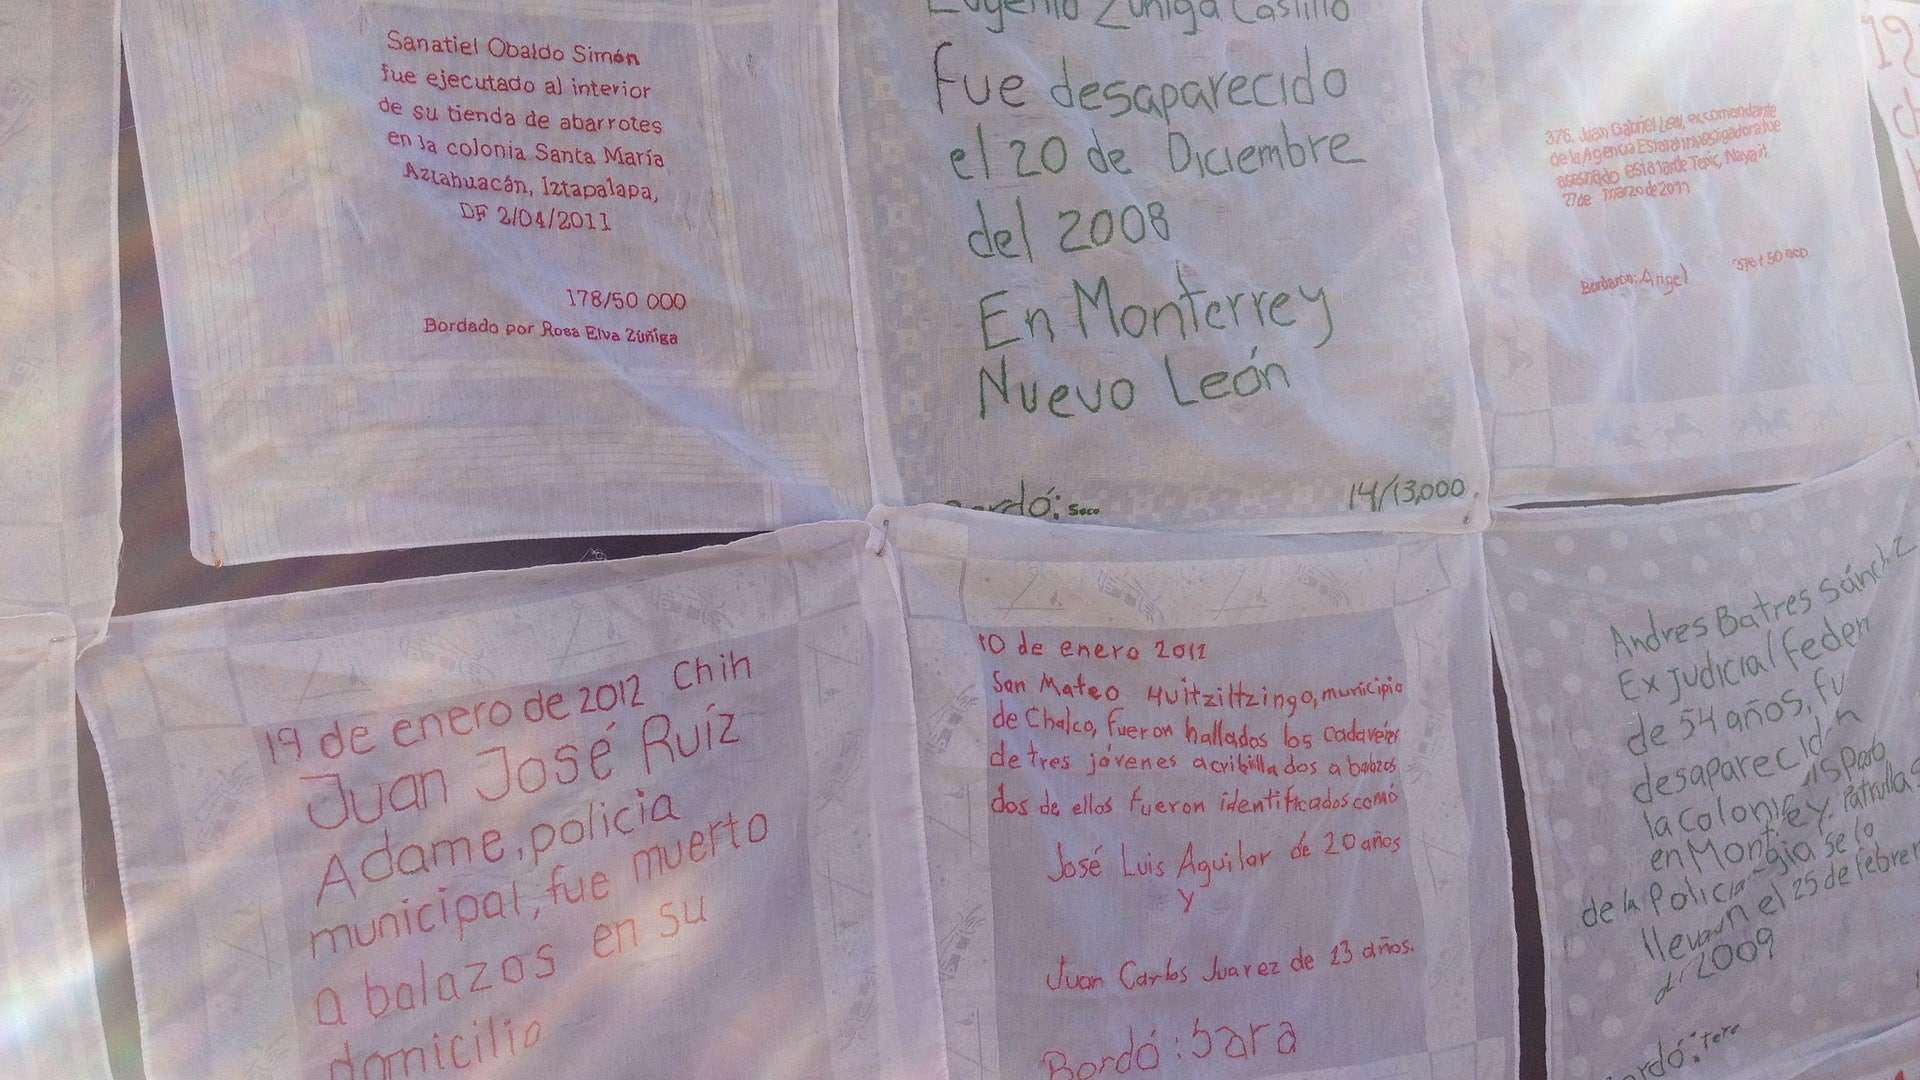 Sanatiel Obaldo Simón
fue ejecutado al interior
de su tienda de abarrotes
en la colonia Santa María
Aztahuacán, Iztapalapa,
DF 2/04/2011
178/50 000
Bordado por Rosa Elva Zúñiga
Eugenio Zúñiga Castillo
Fue desaparecido
el 20 de Diciembre
del 2008
En Monterrey
Nuevo León
Bordó: Soco
14/13,000.
376. Juan Gabriel Leal, excomandante
de la Agencia Estatal Investigadora fue
asesinado esta tarde Tepic, Nayarit
27 de marzo de 2011
Bordaron: Angel
376/50 000
19 de enero de 2012 Chih
Juan José Ruíz
Adame, policia
municipal, fue muerto
a balazos en su
domicilio
10 de enero 2012
San Mateo Huitziltzingo, municipio
de Chalco, fueron hallados los cadaveres
de tres jóvenes acribillados a balazos
dos de ellos fueron identificados comó
José Luis Aguilar de 20 años
y
Juan Carlos Juarez de 23 años.
Bordó: Sara
Andres Batres Sánchez
Ex judicial Feder
de 54 años, fu
desaparecid n
la colonia
en Mont ey. Patrullas
de la Policia se lo
llevaron el 25 de febrer
d 2009
Bordó: Tere